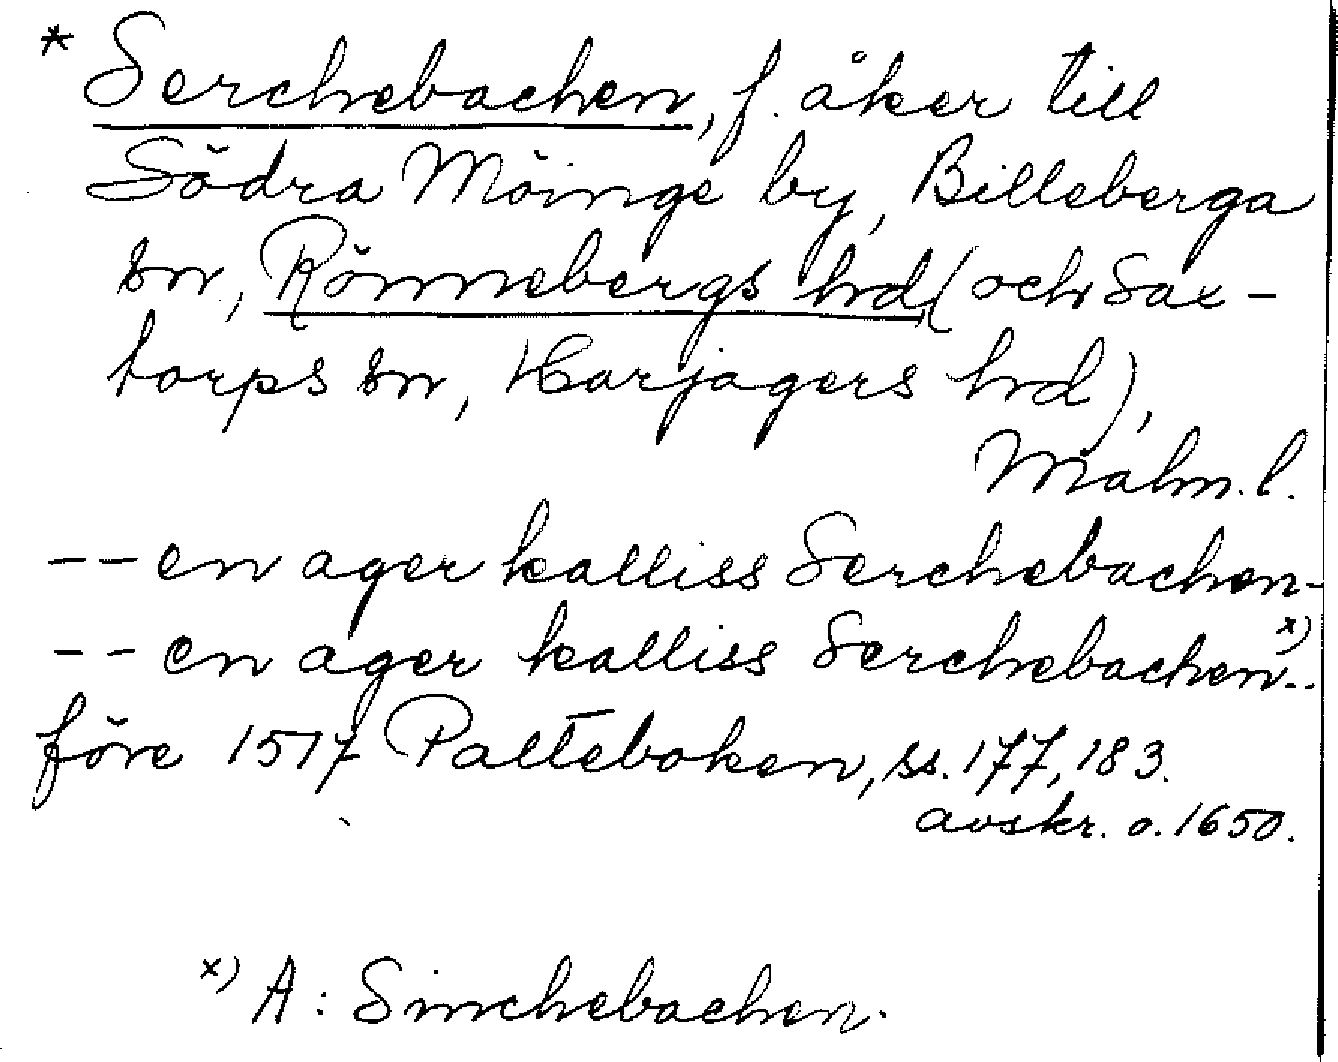 * Serchebachen, f. åker till
Södra Möinge by, Billeberga
sn, Rönnebergs hrd (och Sax-
torps sn, Harjagers hrd),
Malm. l.
-- en ager kalliss Serchebachen-
-- en ager kalliss Serchebachen x)..
före 1517 Palteboken, ss. 177, 183.
avskr. o. 1650.
x) A: Sinchebachen.